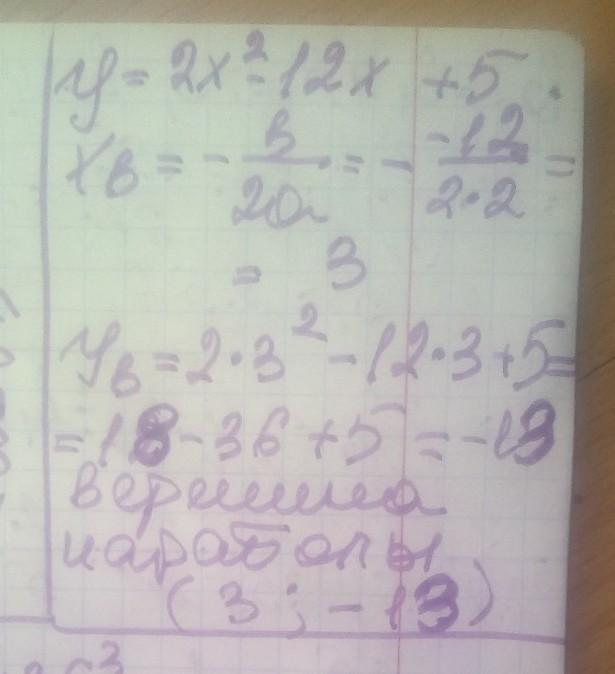 y = 2x² - 12x + 5
xв = - в/2a = - -12/2·2 =
= 3
yв = 2·3² - 12·3 + 5 =
= 18 - 36 + 5 = -13
вершина
параболы
(3; -13)